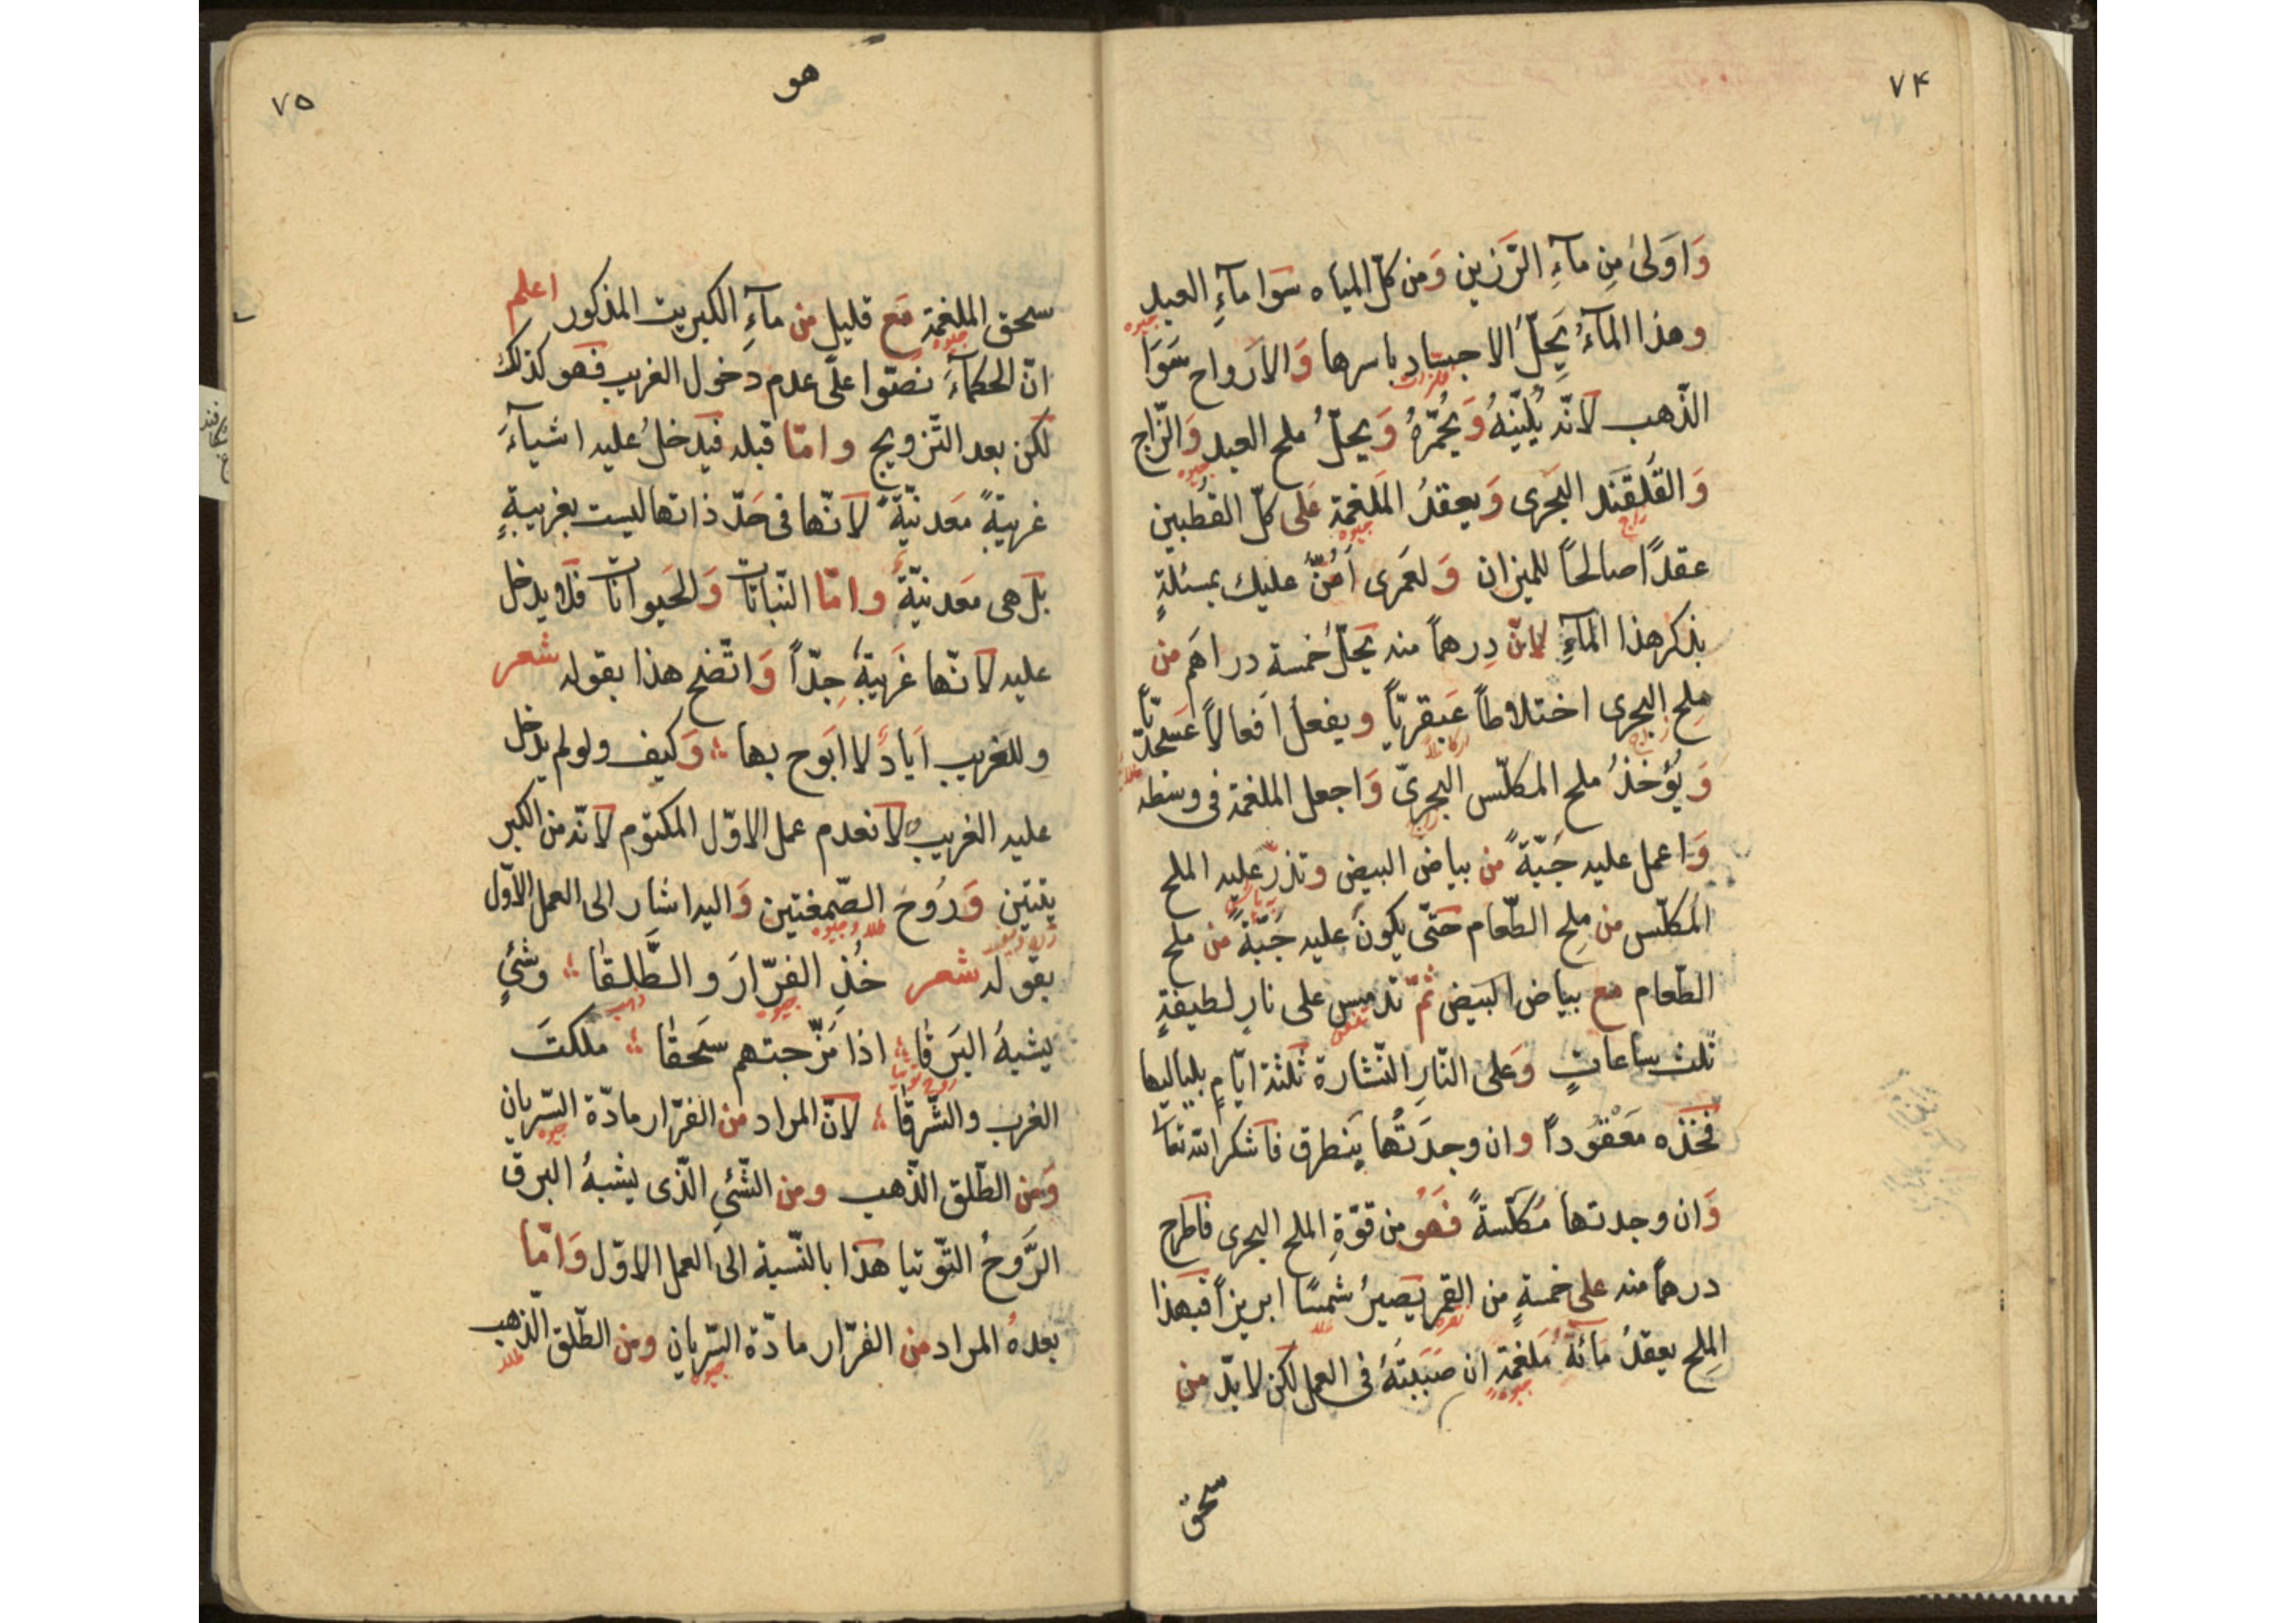 ٧۴
وَاَولىٰ مِن مآءِ الرَّزين وَمن كلّ المياه سَوا مآءِ العبد
جيوه
وهذا المآءُ يَحِلُّ الاجساد باسرها وَالاَرواح سَوَا
فلزات
الذّهب لانّه يُليّنهُ وَيُحمّرهُ وَيحلّ ملح العبد وَالزّاج
جيوه
وَالقَلقَند البَحرى وَيعقدُ المَلغمة عَلى كلّ القُطبين
زاج جيوه
عقدًا صالحًا للميزان وَلعَمرى اَمُنُّ عليك بمسئلةٍ
بذكر هذا المآءِ لانّ دِرهماً منه يَحلّ خمسة دراهَم من
مِلح البحرى اختلاطاً عَبقريّاً ويفعلُ افعالاً عَسجديّاً
زاج
وَيُؤخذُ ملح المكلّس البحرىّ وَاجعل الملغمة فى وسطه
زاج
وَاعمل عليه جُبّةً من بياض البيض وتذرّ عليه الملح
المكلّس من مِلح الطّعام حَتّى يكونَ عليه جُبّةً من ملح
الطّعام مع بياض البَيض ثمّ تدمس على نارٍ لطيفةٍ
ثلث ساعاتٍ وَعلى النّارِ النّشارة ثلثة ايّامٍ بلياليها
فخذه مَعْقُوداً وان وجدَتُها يَنطرق فاشكر الله تعا
وَان وجدتها مُكلّسةً فَهُو من قوّةِ الملح البحرى فاطرح
درهماً منه على خمسةٍ من القمر يَصيرُ شمسًا ابريزاً فبهذا
نقره طلا
المِلح يعقدُ مائة مَلغمة ان صَبَبتَهُ فى العمل لكن لابدّ من
جيوه
سحق
٧۵
هو
سحق الملغمة مَع قليل من مآءِ الكبريت المذكور اعلم
جيوه
انّ الحكمآءَ نصّوا علىٰ عدم دَخول الغريب فهو كذلك
لكن بعد التّزويج وامّا قبله فيَدخلُ عليه اشيآءَ
غريبةً مَعدنيّةً لانّها فى حَدّ ذاتها ليست بغريبةٍ
بل هى مَعدنيّةً وامّا النّباتات وَالحَيوانات فلا يدخل
عليه لانّها غَريبةٌ جِدّاً وَاتّضح هذا بقوله شعر
وللغريب اَيادٍ لا ابَوح بها ؞ وَكيف ولو لم يدخل
عليه الغريب لانعدم عمل الاوّل المكتوم لانّه من الكبر
يتتين وَرُوح الصّمغتين وَاليه اشار الى العمل الاوّل
طلا وجيوه
بقوله شعر خُذِ الفرّارَ والطَّلقا ؞ وشَئٍ
جيوه ذهب
يشبهُ البَرقا ؞ اذا مَزّجتهم سَحقا ؞ ملكتَ
روح توتيا
الغرب والشّرقا ؞ لانّ المراد من الفرّار مادّة السّريان
جيوه
وَمن الطّلق الذّهب ومن الشّئىِ الّذى يشبهُ البرق
الرَّوحُ التّوتيا هَذا بالنّسبة الى العمل الاوّل وَامّا
بعدهُ المراد من الفرّار مادّة السّريان ومن الطّلق الذّهب
جيوه طلا